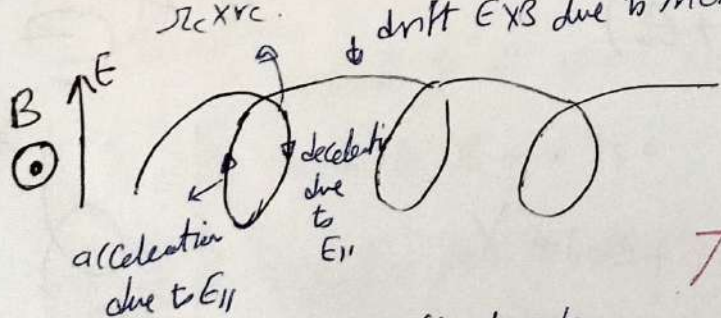 Ωc×rc.
drift E×B due to
E
B
deceleration
due
to
E||
acceleration
due to E||